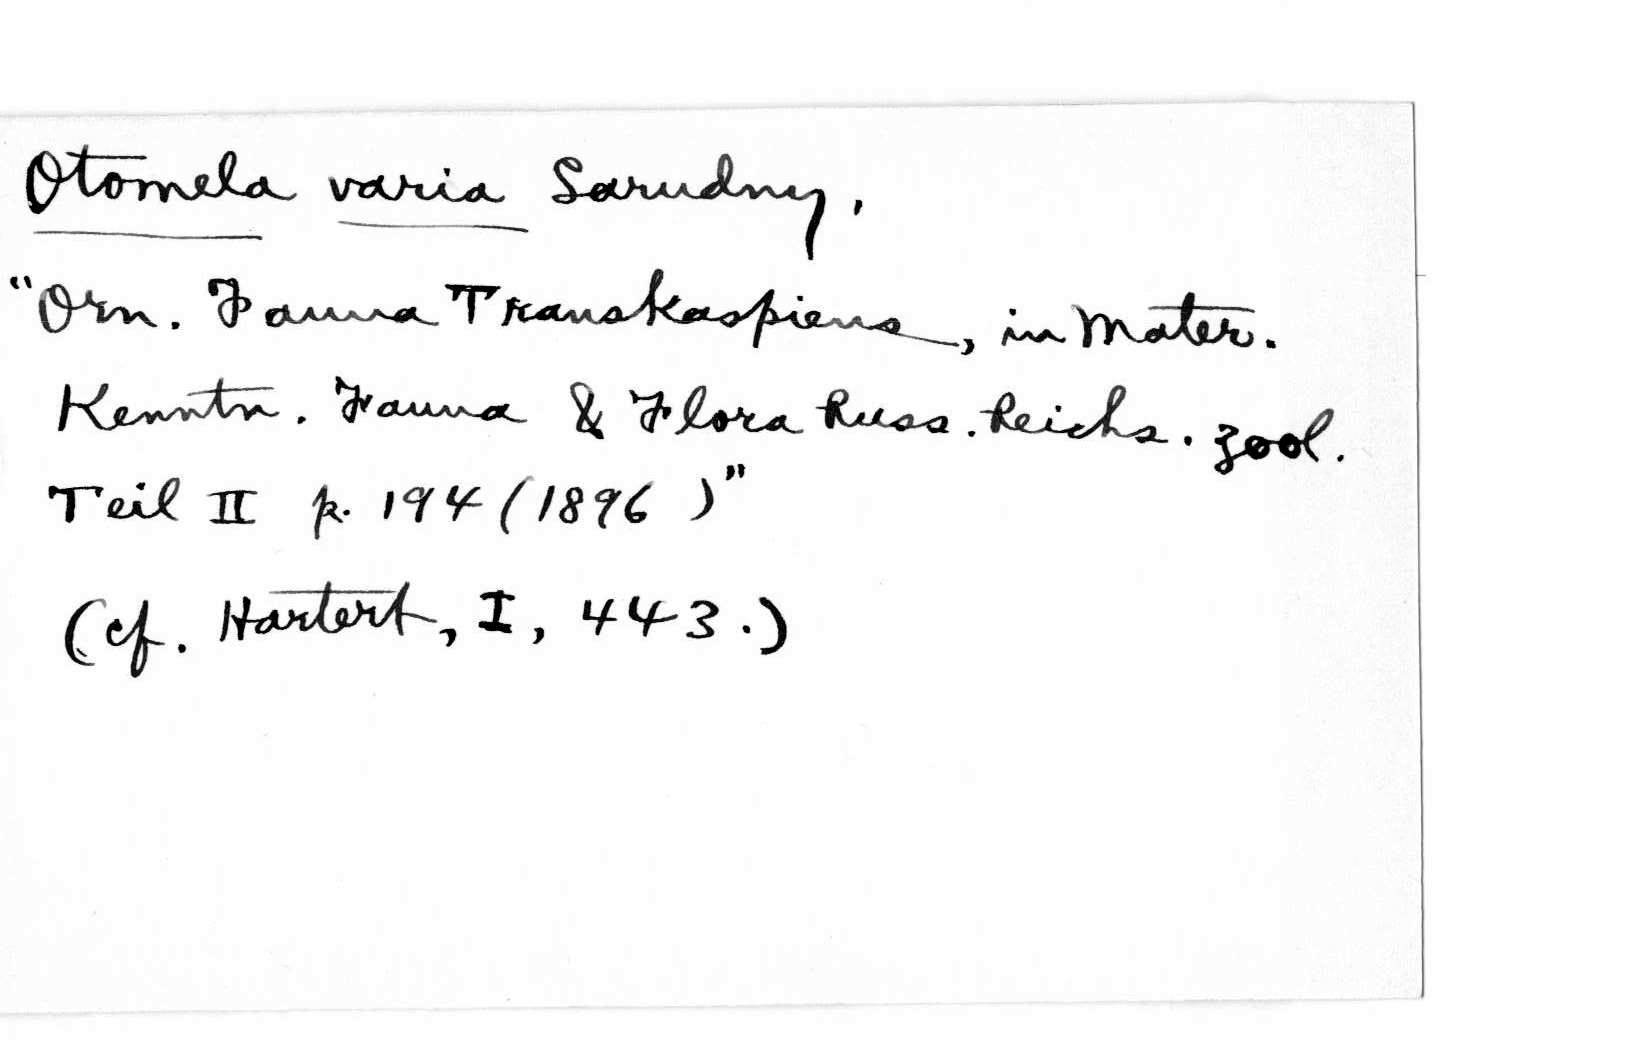 Otomela varia Sarudny,
"Orn. Fauna Transkaspiens, in Mater.
Kenntn. Fauna & Flora Russ. Reichs. Zool.
Teil II p. 194 (1896 )"
(cf. Hartert, I, 443.)